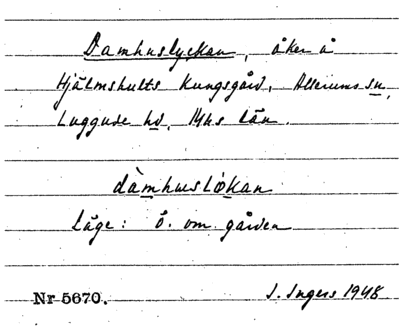 Damhuslyckan, åker å
Hjälmshults Kungsgård, Allerums sn,
Luggude hd, Mhs län.
dàmhuslökan
Läge: Ö. om gården
Nr 5670. I. Ingers 1948